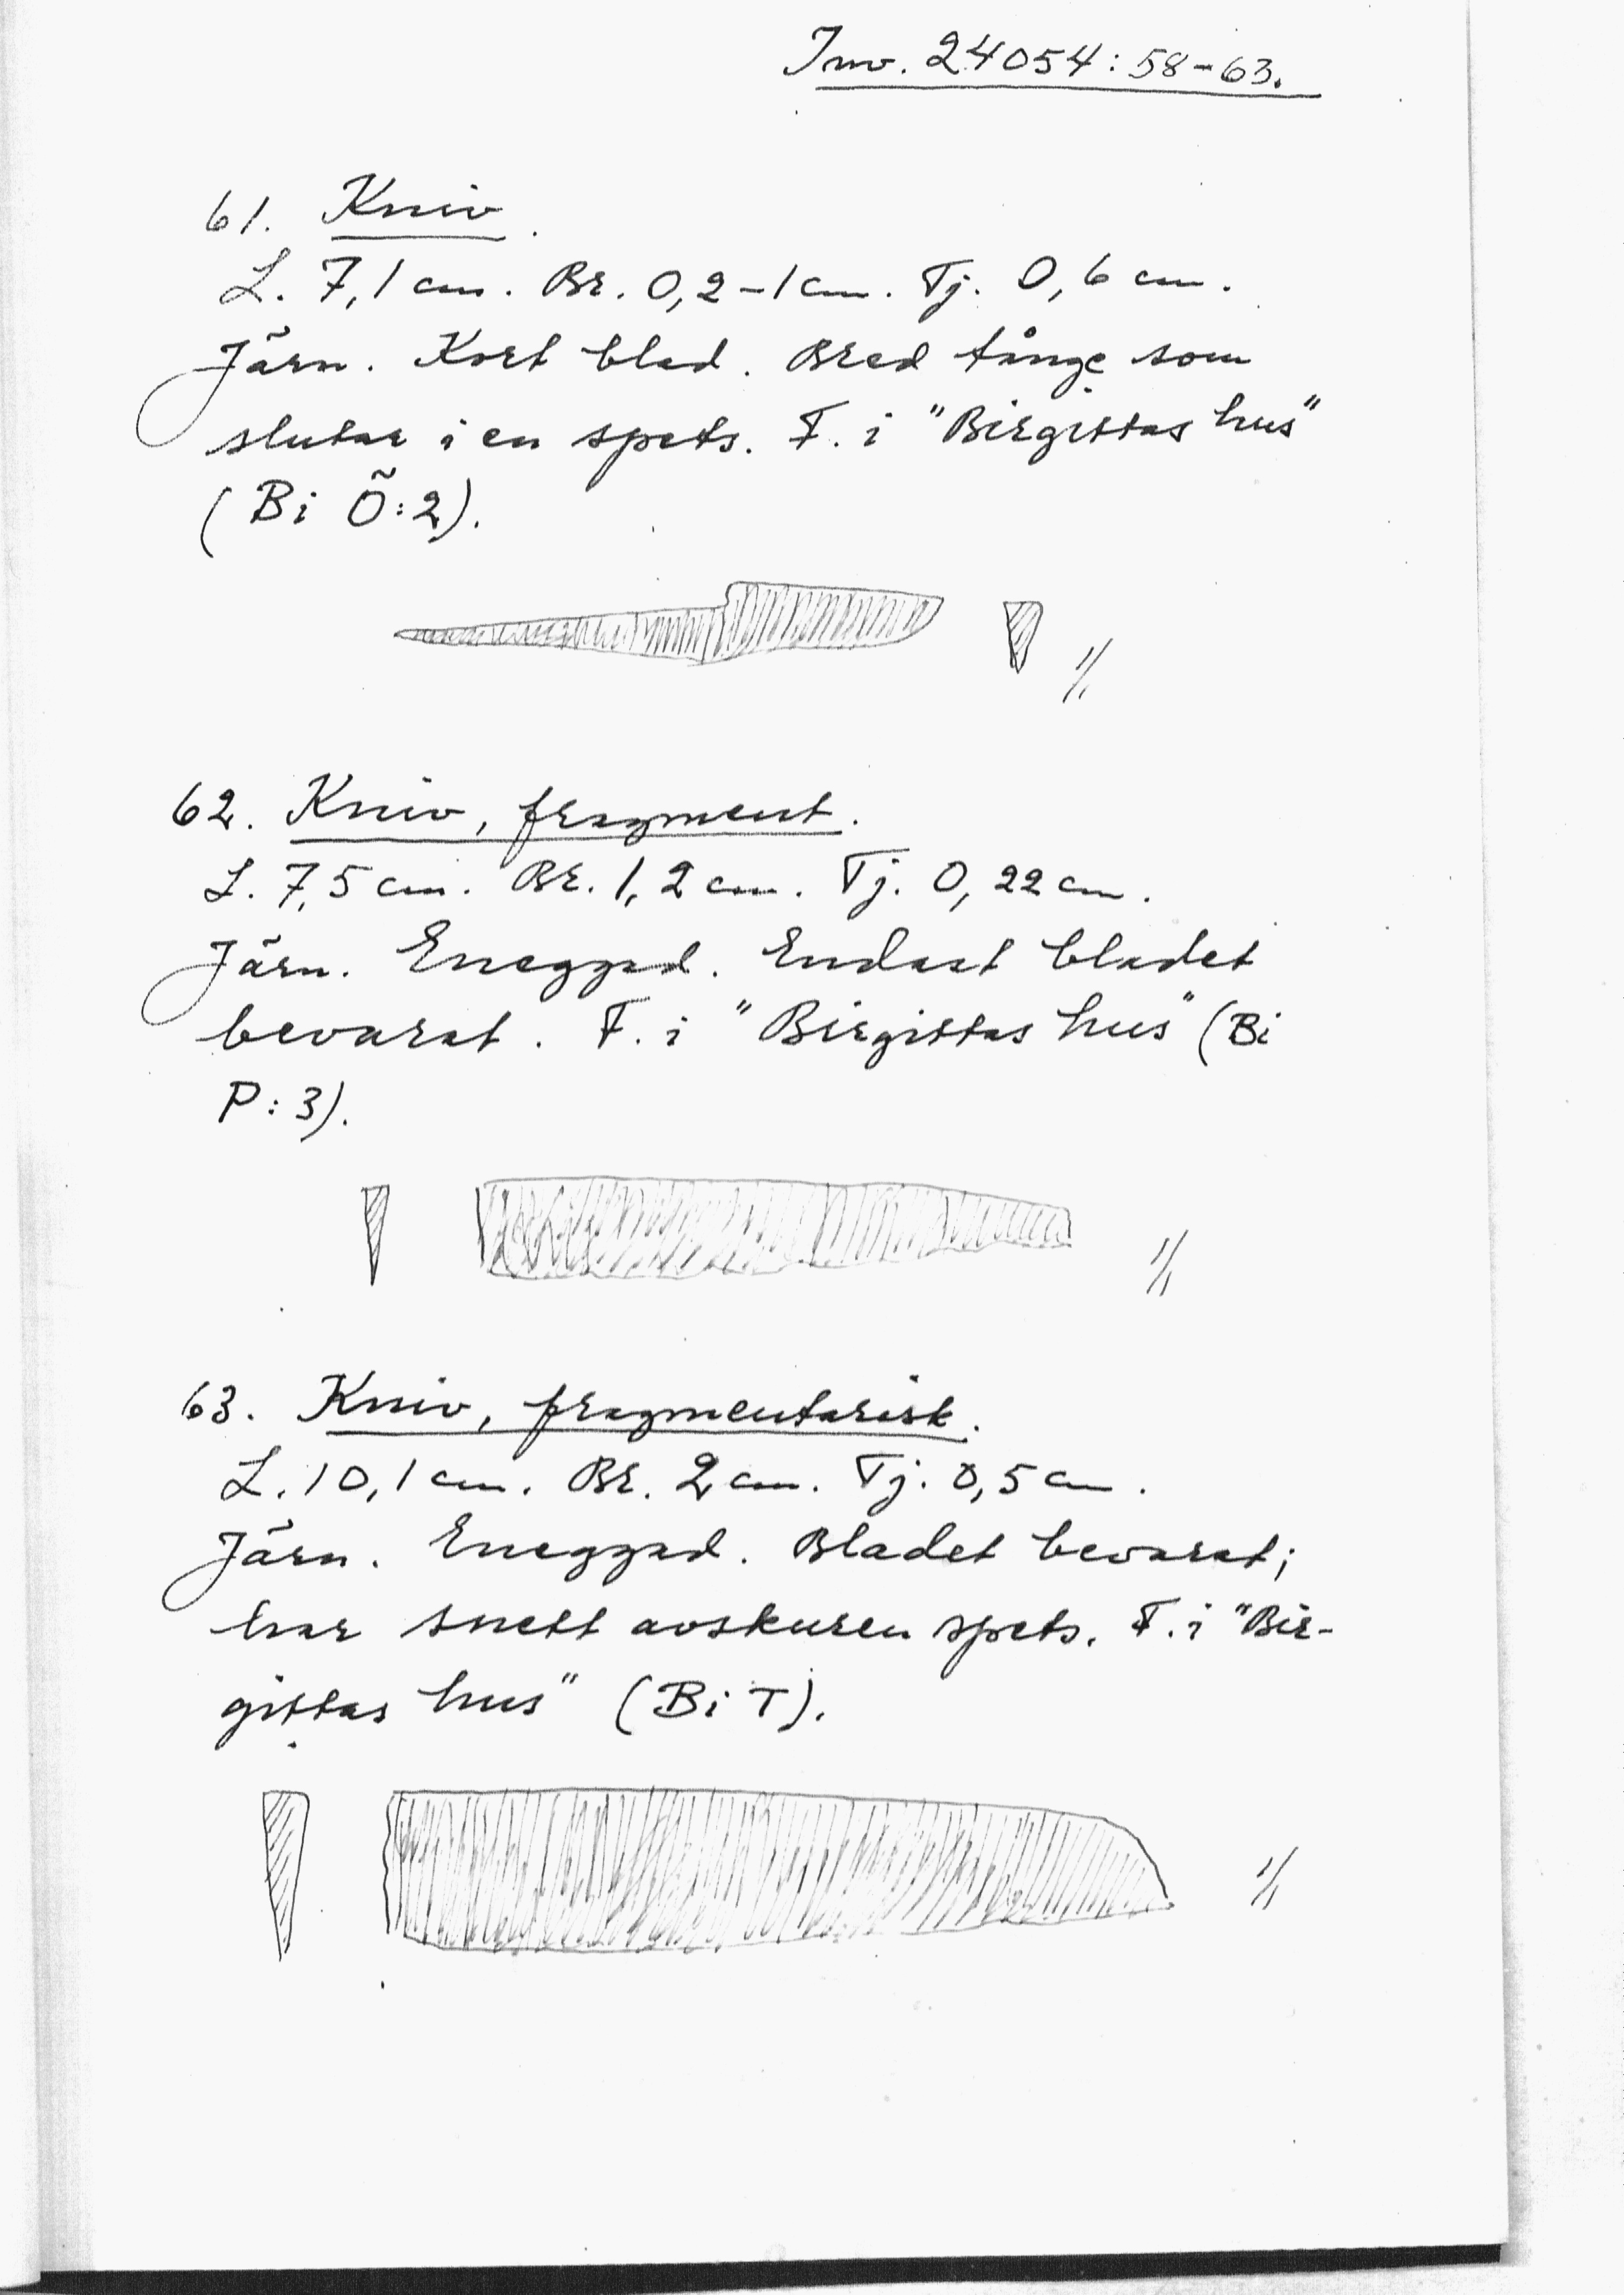 Inv. 24054:58-63.
61. Kniv.
L. 7,1 cm. Br. 0,2-1 cm. Tj. 0,6 cm.
Järn. Kort blad. Bred tånge som
slutar i en spets. F. i "Birgittas hus"
(Bi Ö:2).
1/1
62. Kniv, fragment.
L. 7,5 cm. Br. 1,2 cm. Tj. 0,22 cm.
Järn. Eneggad. Endast bladet
bevarat. F. i "Birgittas hus" (Bi
P:3).
1/1
63. Kniv, fragmentarisk.
L. 10,1 cm. Br. 2 cm. Tj. 0,5 cm.
Järn. Eneggad. Bladet bevarat;
har snett avskuren spets. F. i "Bir-
gittas hus" (Bi T).
1/1